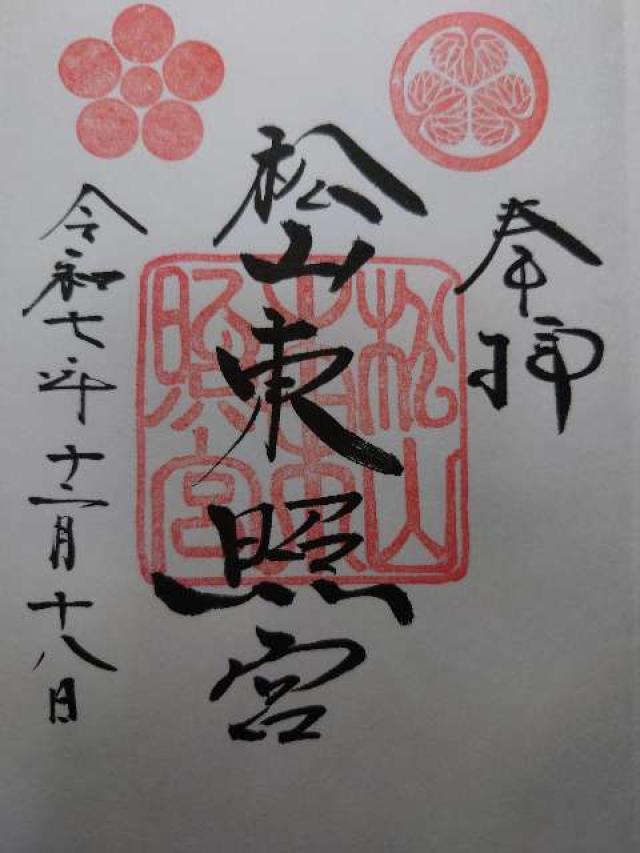 奉拝
松山東照宮
令和七年十二月十八日
松山
東照宮